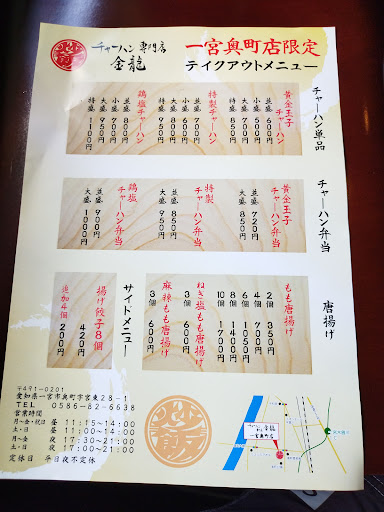 チャーハン専門店
金龍
一宮奥町店限定
テイクアウトメニュー
チャーハン単品
黄金玉子
チャーハン
並盛 600円
小盛 500円
大盛 700円
特盛 850円
特製チャーハン
並盛
小盛
大盛
特盛 950円
鶏塩チャーハン
並盛 800円
小盛 700円
大盛
特盛 1100円
チャーハン弁当
黄金玉子
チャーハン弁当
並盛 720円
大盛
特製
チャーハン弁当
並盛 850円
大盛 950円
鶏塩
チャーハン弁当
並盛 900円
大盛 1000円
唐揚げ
もも唐揚げ
2個 350円
4個 700円
6個 1050円
8個 1400円
10個 1700円
ねぎ塩もも唐揚げ
3個 600円
麻辣もも唐揚げ
3個 600円
サイドメニュー
揚げ餃子8個
420円
追加4個
200円
〒491-0201
愛知県一宮市奥町字宮東28-1
TEL 0586-82-6638
営業時間
月～金・祝日 昼 11:15～14:00
土・日 昼 11:00～14:00
月～金 夜 17:30～21:00
土・日 夜 17:00～21:00
定休日 平日夜不定休